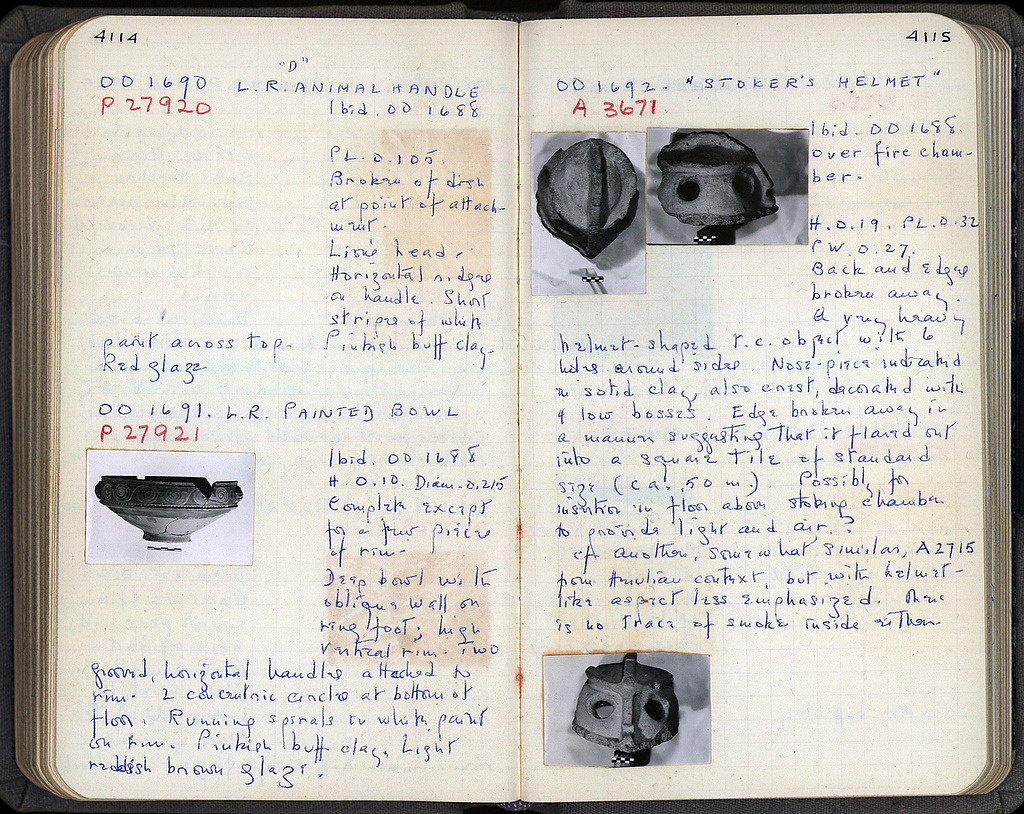 4114
"D"
OO 1690 L.R. ANIMAL HANDLE
P 27920 Ibid. OO 1688
PL. 0.105.
Broken of dish
at point of attach-
ment.
Lion's head.
Horizontal ridges
on handle. Short
stripes of white
paint across top. Pinkish buff clay.
Red glaze
OO 1691. L.R. PAINTED BOWL
P 27921
Ibid. OO 1688
H. 0.10. Diam. 0.215
Complete except
for a few pieces
of rim.
Deep bowl with
oblique wall on
ring foot; high
vertical rim. Two
grooved, horizontal handles attached to
rim. 2 concentric circles at bottom of
floor. Running spirals in white paint
on rim. Pinkish buff clay, light
reddish brown glaze.
4115
OO 1692. "STOKER'S HELMET"
A 3671
Ibid. OO 1688.
over fire cham-
ber.
H. 0.19. PL. 0.32
PW. 0.27.
Back and edges
broken away.
A very heavy
helmet-shaped T.C. object with 6
holes around sides. Nose-piece indicated
in solid clay, also crest, decorated with
4 low bosses. Edge broken away in
a manner suggesting that it flared out
into a square tile of standard
size (ca. .50 m.). Possibly for
insertion in floor above stoking chamber
to provide light and air.?
cf another, somewhat similar, A 2715
from Herulian context, but with helmet-
like aspect less emphasized. There
is no trace of smoke inside either.